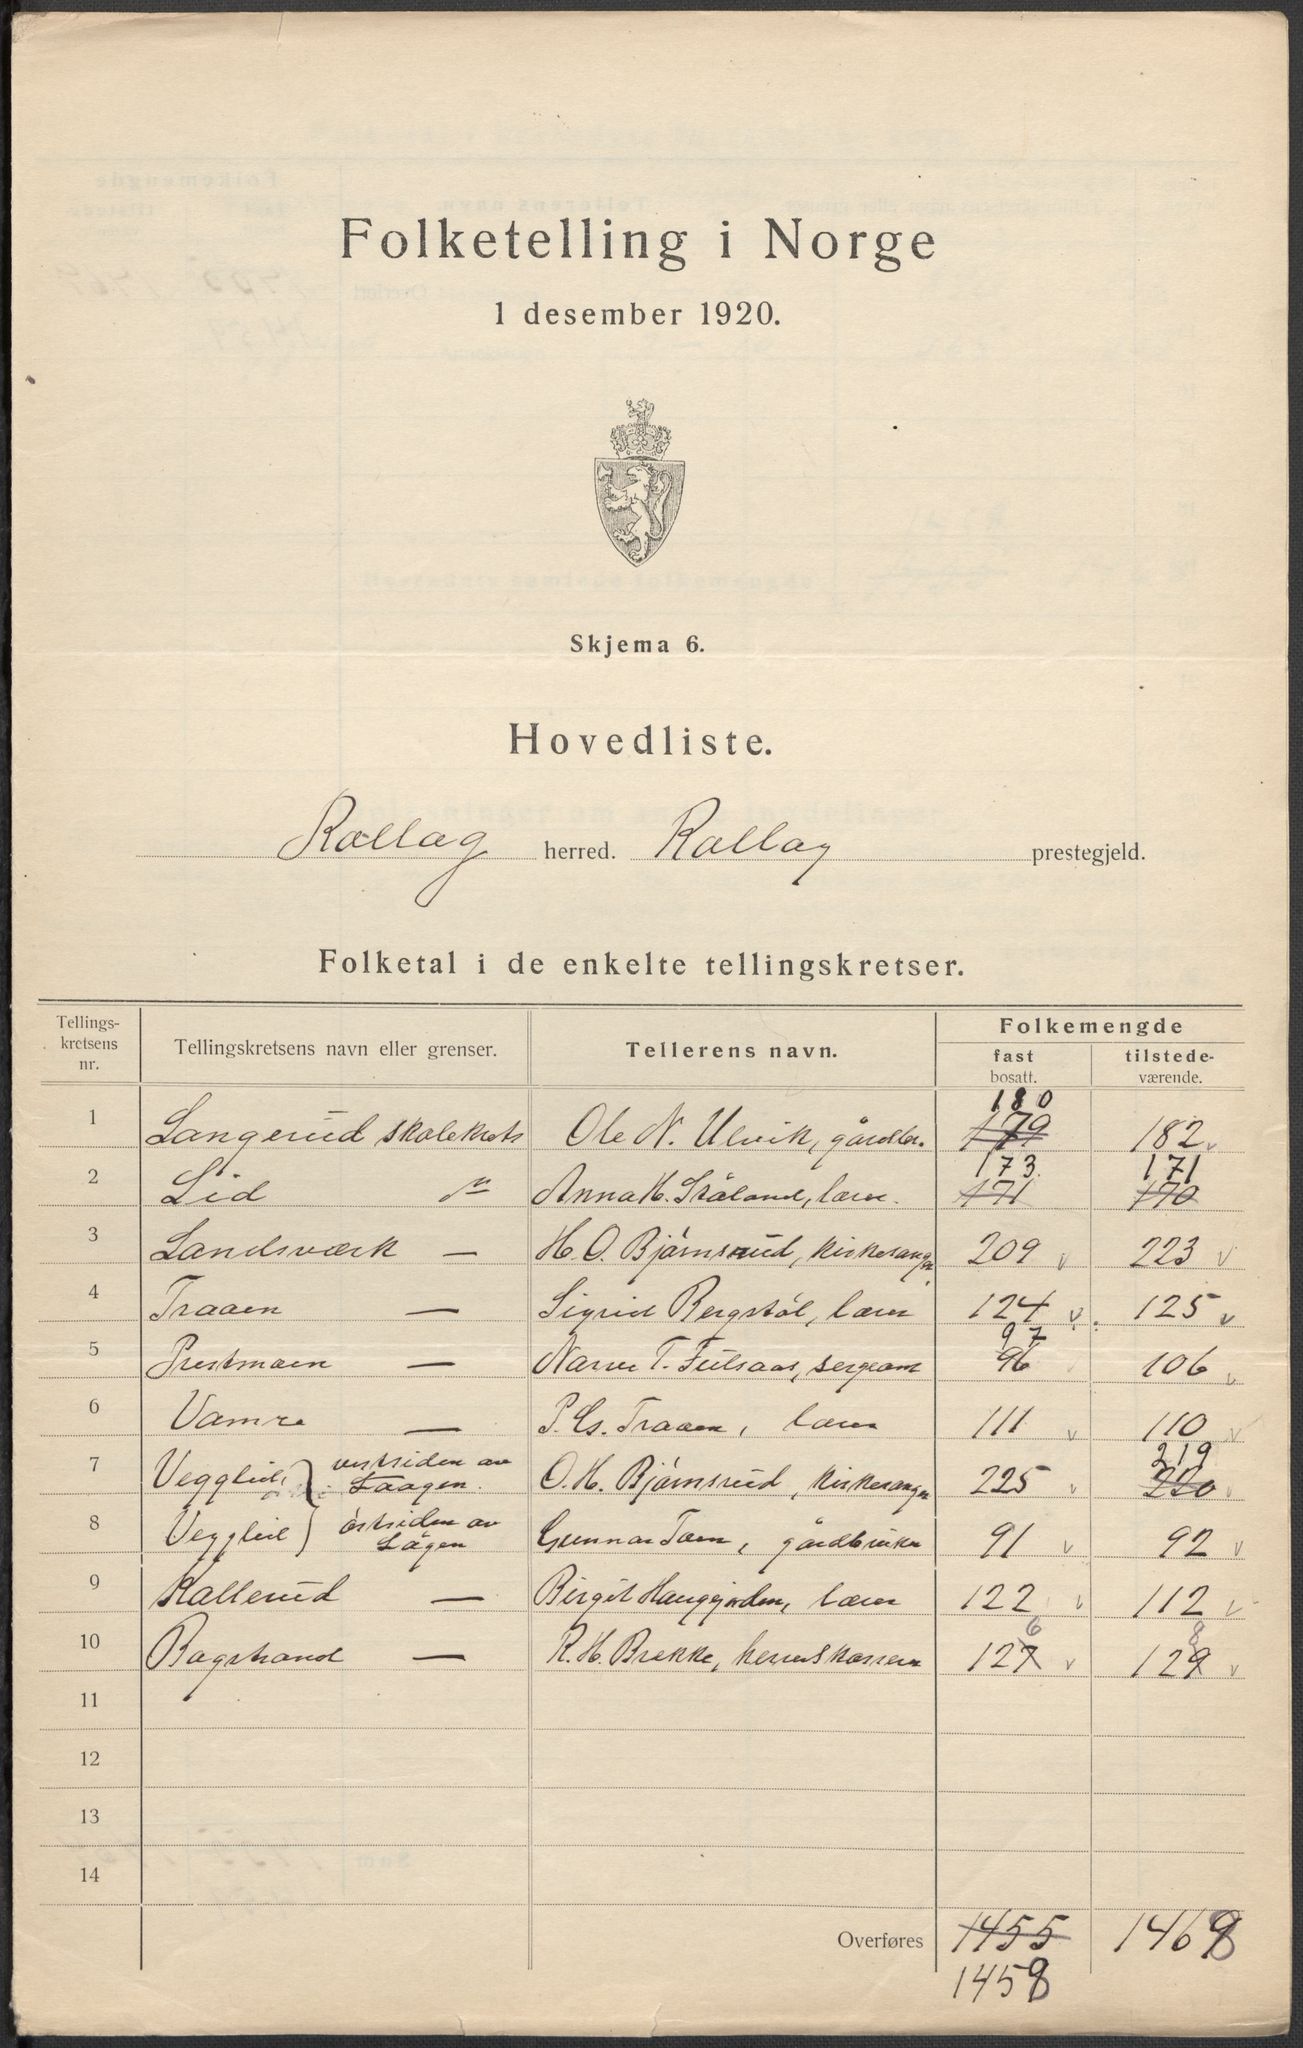 Folketelling i Norge
1 desember 1920.
Skjema 6.
Hovedliste.
Rollag herred. Rollag prestegjeld.
Folketal i de enkelte tellingskretser.
Tellings-kretsens nr. Tellingskretsens navn eller grenser. Tellerens navn. Folkemengde
fast bosatt. tilstede-værende.
180
1 Langerud skolekrets Ole N. Ulvik, gårdbr. 179 182 v
173. 171
2 Lid Anna H. Ståland, lærer. 171 170
3 Landsværk — H. O. Bjørnsrud, kirkesanger 209 v 223 v
4 Traaen — Sigrid Bergstøl, lærer 124 v. 125 v
97
5 Prestmoen — Narve T. Fulsaas, sergeant 96 106 v
6 Vamre — P. Cs. Traaen, lærer 111 v 110 v
219
7 Vegglid, vestsiden av Laagen. O. H. Bjørnsrud, kirkesanger 225 v 220 v
8 Vegglid østsiden av Lågen Gunnar Toen, gårdbruker 91 v 92 v
9 Kallerud — Birgit Haugjorden, lærer 122 v 112 v
6 8
10 Bogstrand — R. H. Brekke, herredskasserer 127 v 129 v
11
12
13
14
Overføres 1455 1468
1458